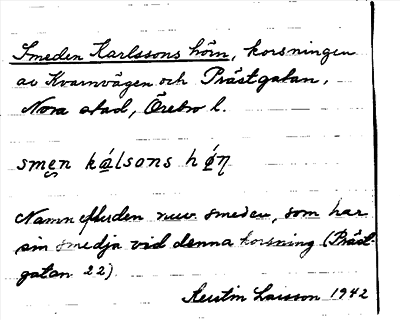 Smeden Karlssons hörn, korsningen
av Kvarnvägen och Prästgatan,
Nora stad, Örebro l.
smen kálsons hǿn
Namn efter den nuv. smeden, som har
sin smedja vid denna korsning (Präst-
gatan 22).
Kerstin Larsson 1942